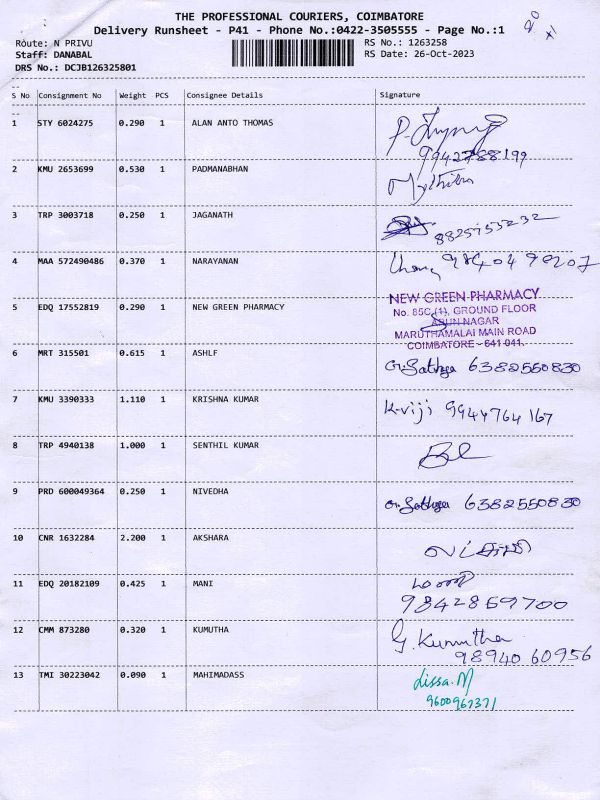 THE PROFESSIONAL COURIERS, COIMBATORE
Delivery Runsheet - P41 - Phone No.:0422-3505555 - Page No.:1
Route: N PRIVU RS No.: 1263258
Staff: DANABAL RS Date: 26-Oct-2023
DRS No.: DCJB126325801
S No Consignment No Weight PCS Consignee Details Signature
1 STY 6024275 0.290 1 ALAN ANTO THOMAS
9942788199
2 KMU 2653699 0.530 1 PADMANABHAN
3 TRP 3003718 0.250 1 JAGANATH
8825953232
4 MAA 572490486 0.370 1 NARAYANAN
NEW GREEN PHARMACY
No. 85C (1), GROUND FLOOR
5 EDQ 17552819 0.290 1 NEW GREEN PHARMACY
ARUN NAGAR
MARUTHAMALAI MAIN ROAD
COIMBATORE - 641 041.
6 MRT 315501 0.615 1 ASHLF
Sathya 6382550830
7 KMU 3390333 1.110 1 KRISHNA KUMAR
K.viji 9944764167
8 TRP 4940138 1.000 1 SENTHIL KUMAR
9 PRD 600049364 0.250 1 NIVEDHA
Sathya 6382550830
10 CNR 1632284 2.200 1 AKSHARA
11 EDQ 20182109 0.425 1 MANI
9842859700
12 CMM 873280 0.320 1 KUMUTHA
G. Kumutha
98940 60956
13 TMI 30223042 0.090 1 MAHIMADASS
Lissa.M
9600967371